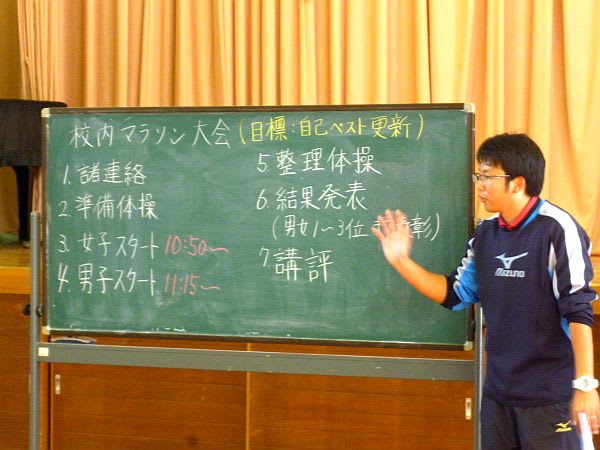 校内マラソン大会(目標:自己ベスト更新)
1. 諸連絡
2. 準備体操
3. 女子スタート 10:50〜
4. 男子スタート 11:15〜
5. 整理体操
6. 結果発表
(男女1〜3位 彰)
7. 講評
MIZUNO